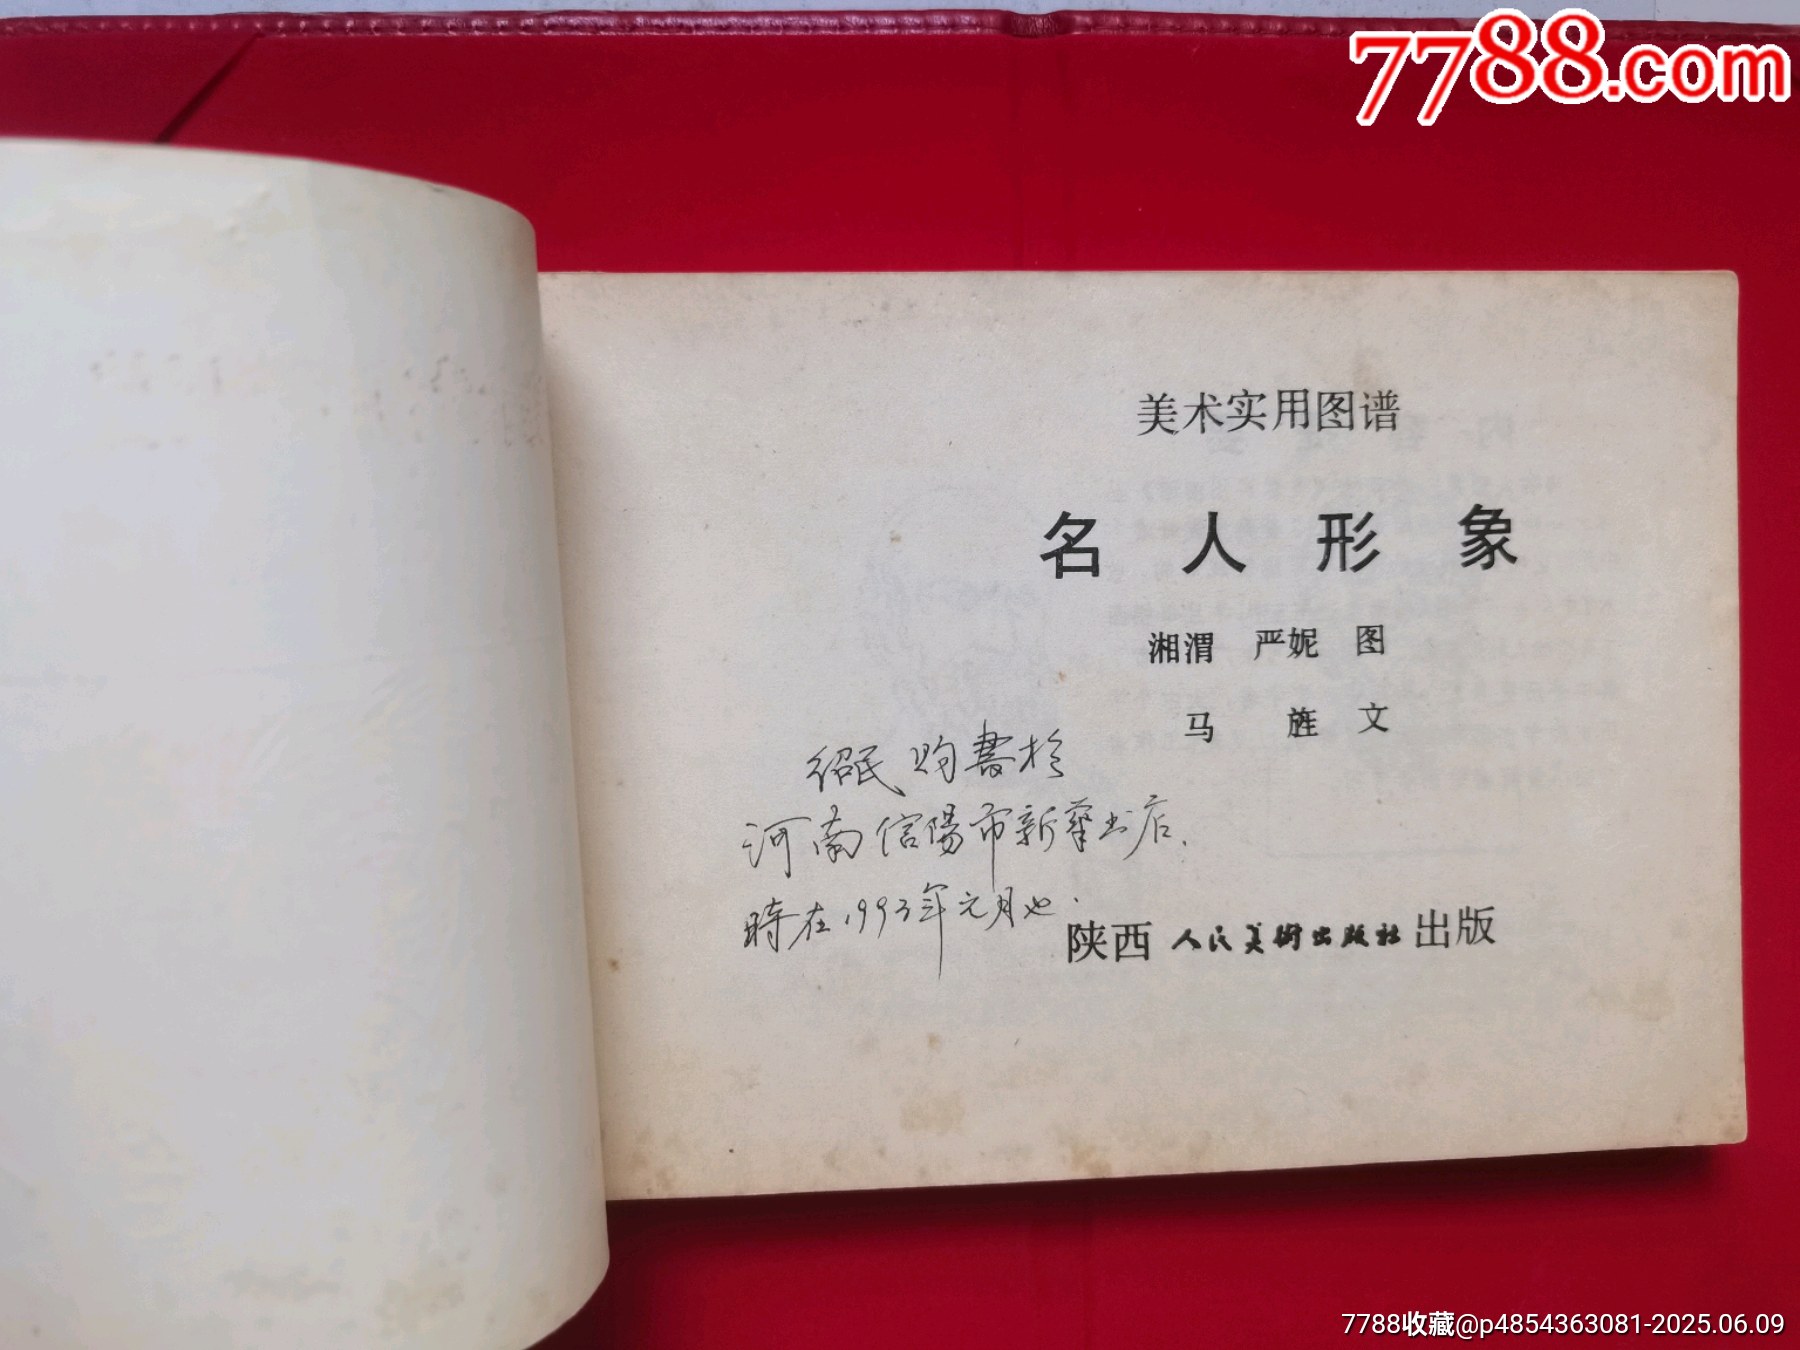 7788.com
美术实用图谱
名人形象
湘渭 严妮 图
马 旌 文
绍民购書於
河南信陽市新華书店.
時在1993年元月也.
陕西人民美術出版社出版
7788收藏@p4854363081-2025.06.09